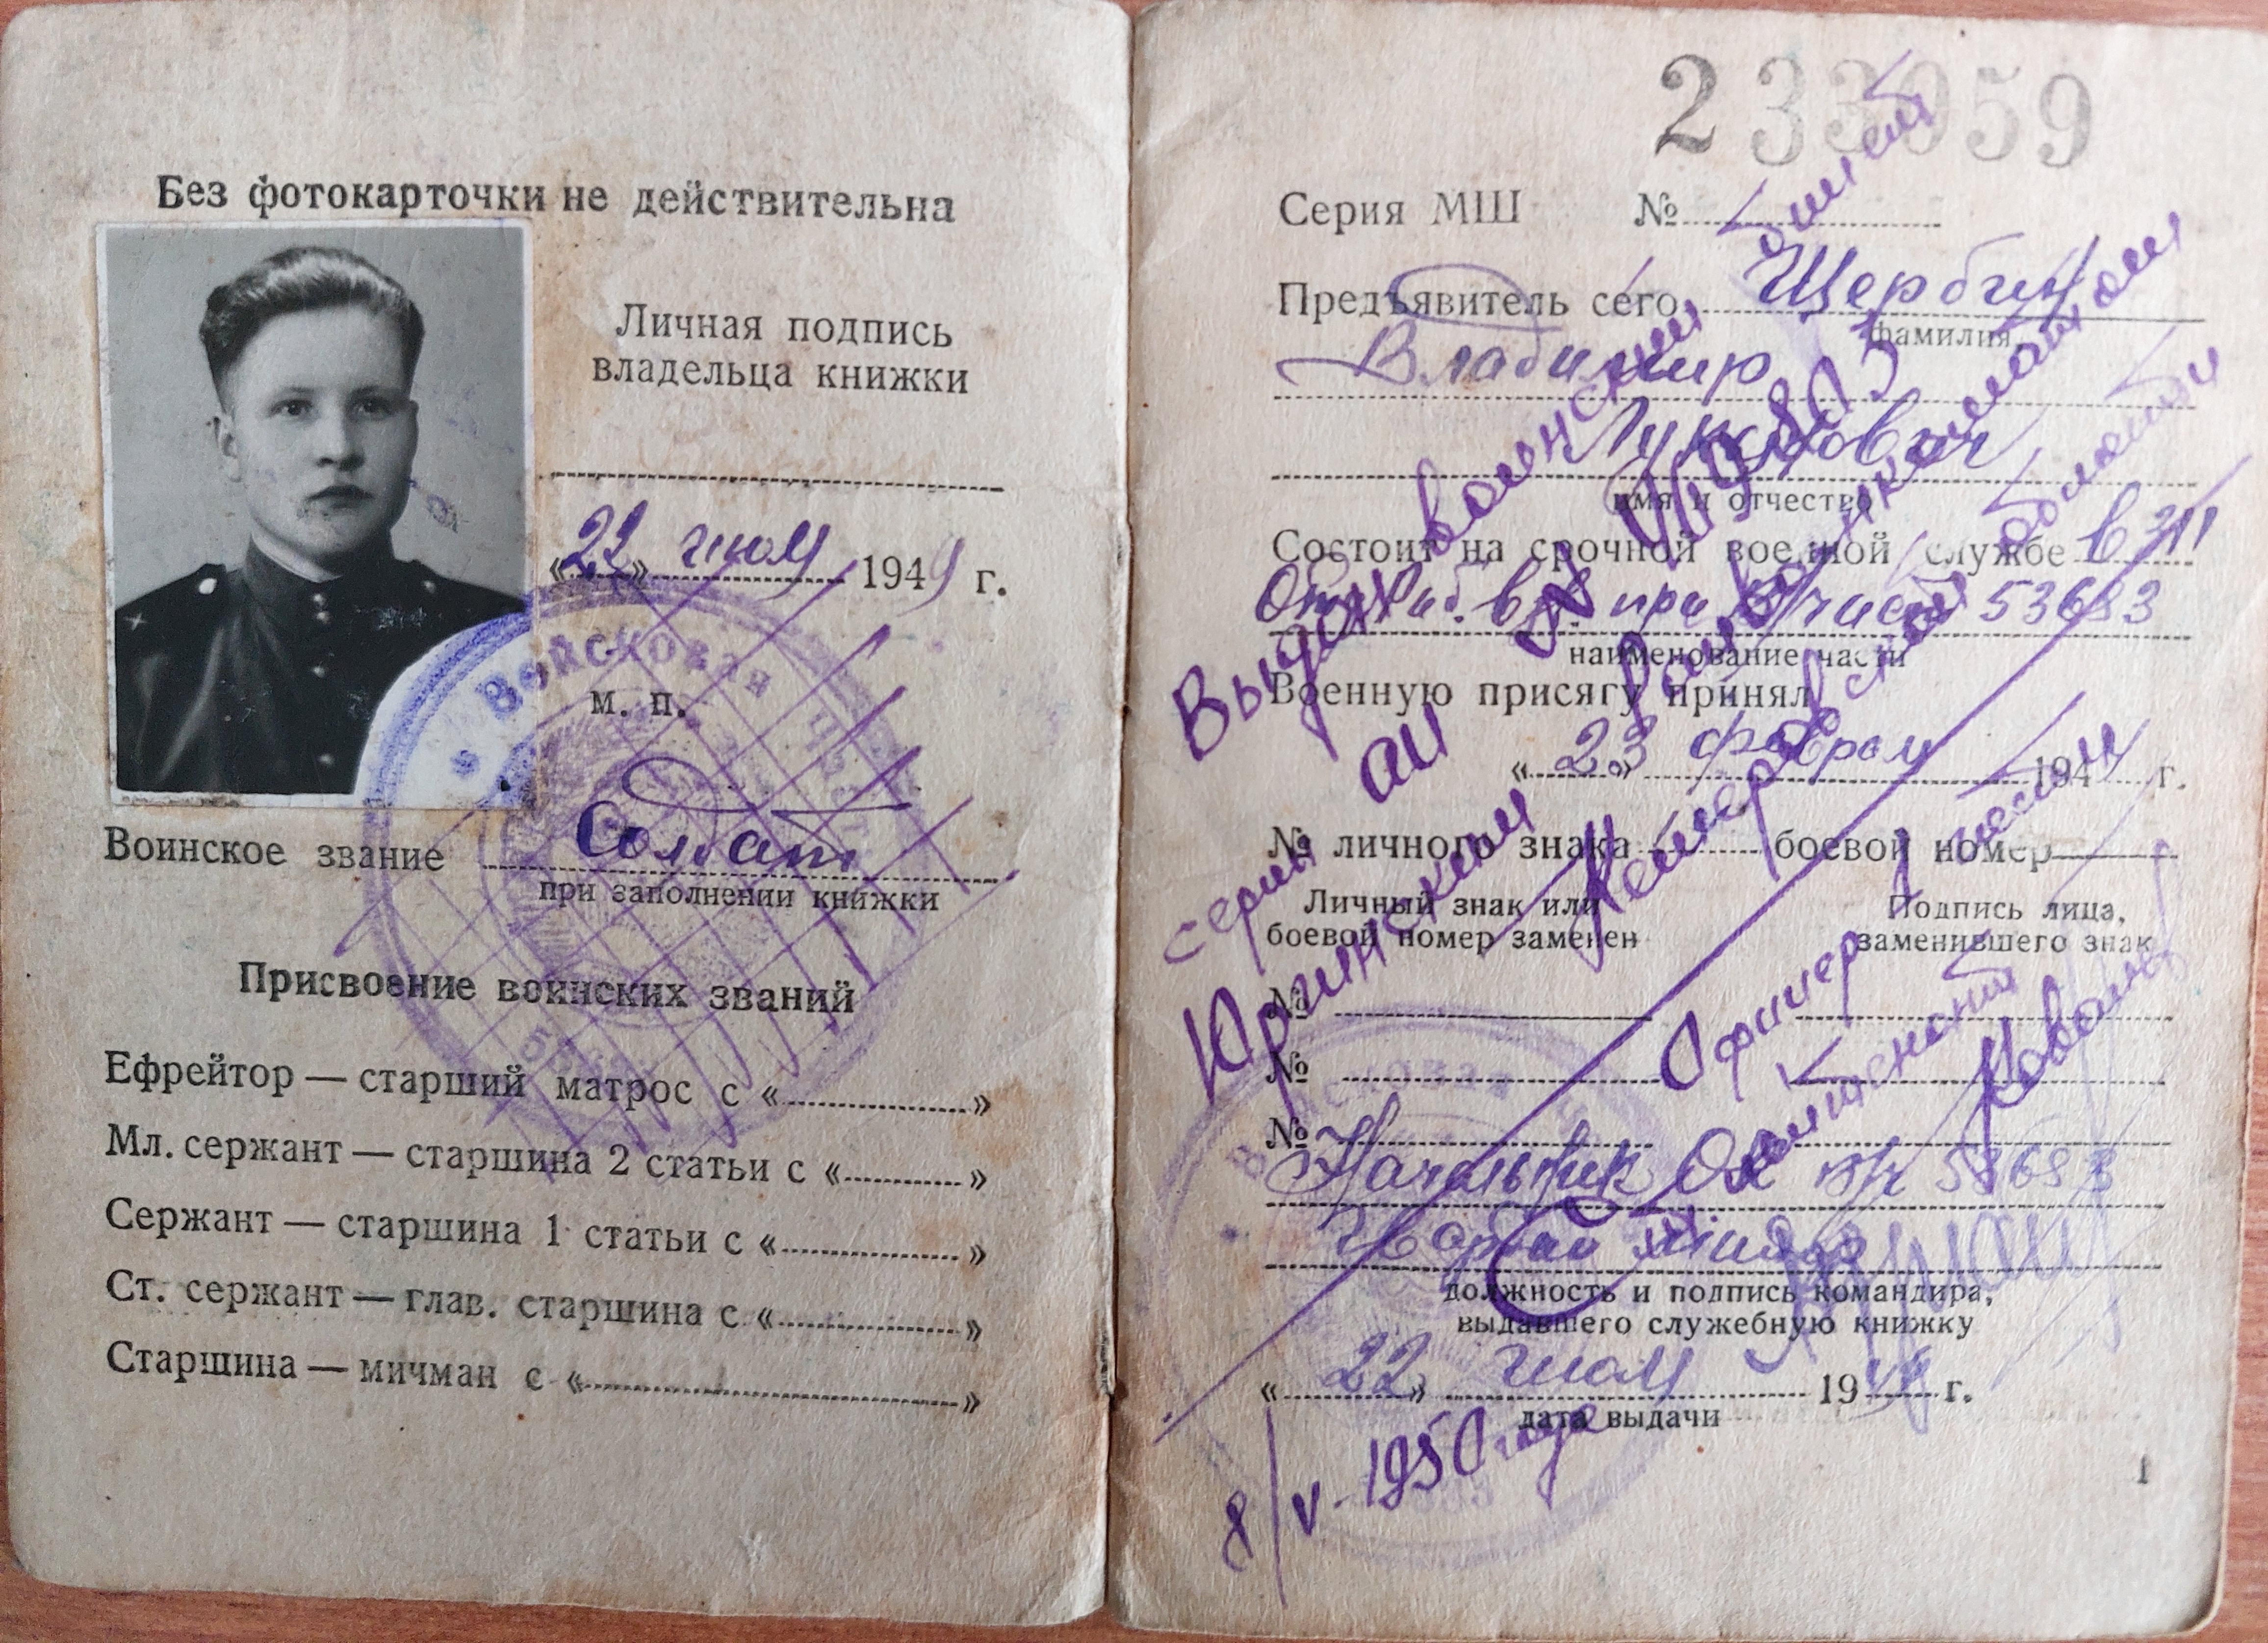 Без фотокарточки не действительна
Личная подпись
владельца книжки
«22» июля 1949 г.
Войсковая
м. п.
Воинское звание Солдат
при заполнении книжки
Присвоение воинских званий
Ефрейтор — старший матрос с « »
Мл. сержант — старшина 2 статьи с « »
Сержант — старшина 1 статьи с « »
Ст. сержант — глав. старшина с « »
Старшина — мичман с « »
233059
Серия МШ №
Предъявитель сего Щербин
фамилия,
Владимир
имя и отчество
Состоит на срочной военной службе в
при в/части 53683
наименование части
Военную присягу принял
«23» февраля 194 г.
№ личного знака — боевой номер —
Личный знак или
боевой номер заменен
Подпись лица,
заменившего знак
№
№
№
Начальник в/ч 53683
должность и подпись командира,
выдавшего служебную книжку
«22» июля 19 г.
дата выдачи
1
Выдан военский билет
серии АП №
Юргинским Райвоенкоматом
Кемеровской области
Офицер
лейтенант
8/V-1950 года